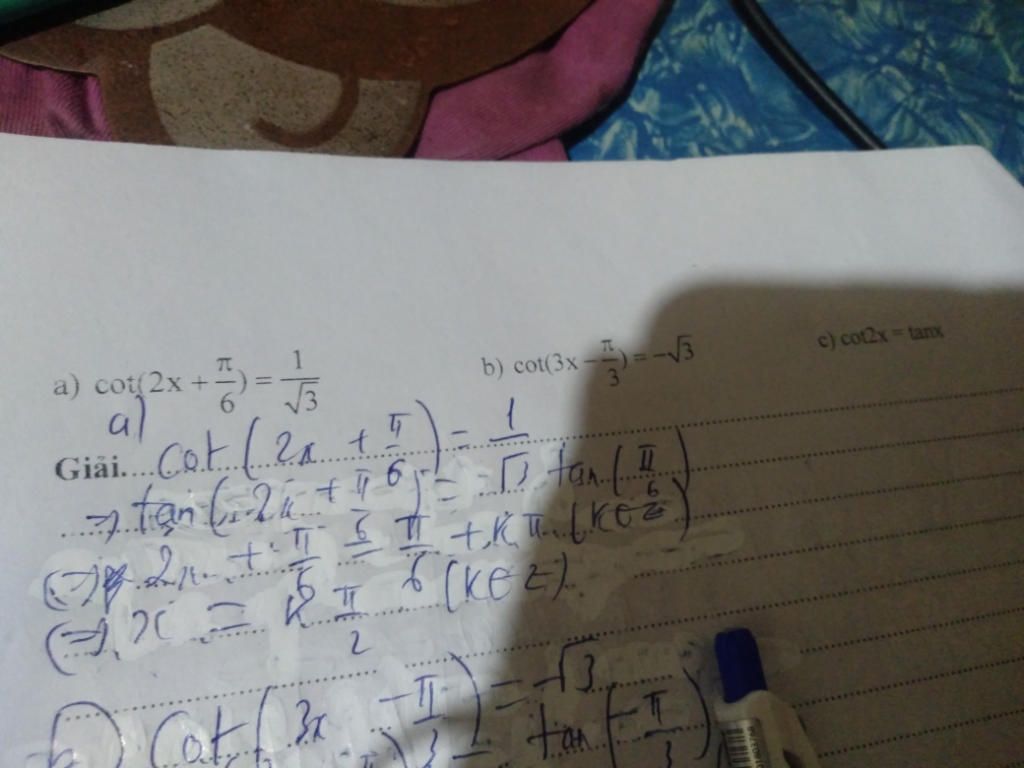 a) cot(2x + π/6) = 1/√3 b) cot(3x − π/3) = −√3 c) cot2x = tanx
a)
Giải....cot (2x + π/6) = 1/√3
=> tan (2x + π/6) = tan (π/6)
(=) 2x + π/6 = π/6 + kπ (k∈Z)
(=) x = k π/2 (k∈Z)
b) cot (3x - π/3) = -√3
tan (-π/3)